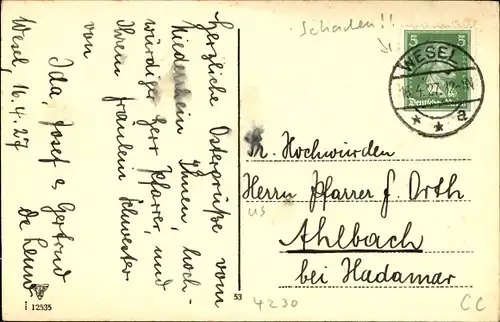 Herzliche Ostergrüße vom
Niederrhein Ihnen, hoch-
würdiger Herr Pfarrer, und
Ihrem Fräulein Schwester
von
Ida, Josef & Gertrud
Wesel, 16.4.27
Schaden!!
5 5
WESEL
27.12
Deutsches Reich
* * a
Sr. Hochwürden
Herrn Pfarrer F. Orth
Ahlbach
bei Hadamar
i 12535
53
4230
CC